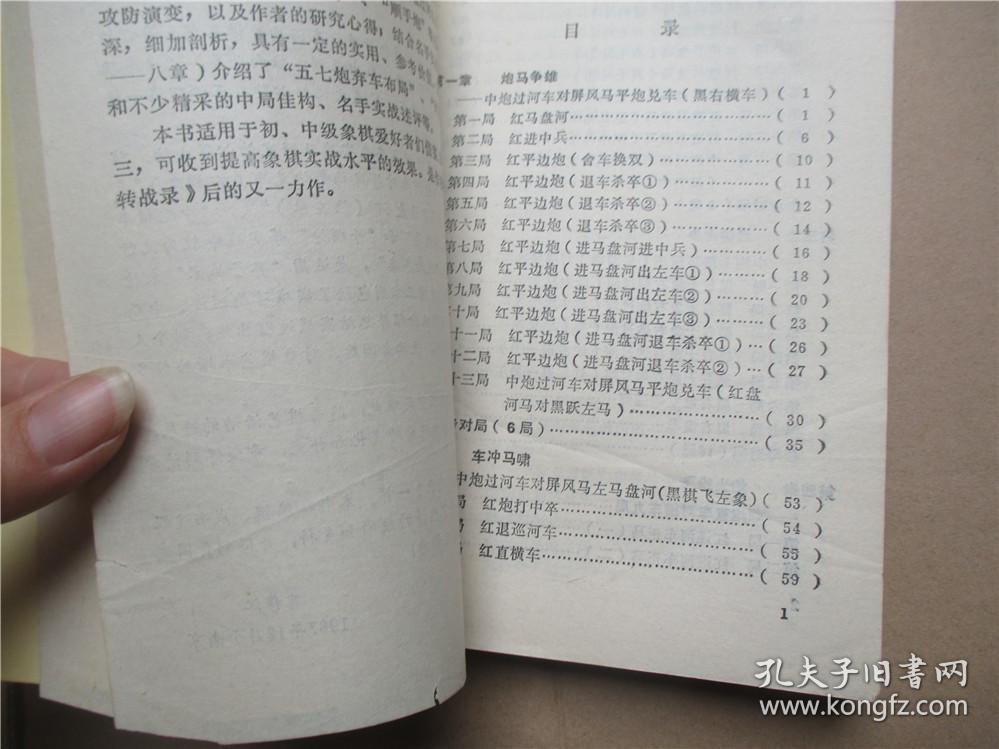 攻防演变，以及作者的研究心得，结合名手
深，细加剖析，具有一定的实用、参考价值
——八章）介绍了“五七炮弃车布局”
和不少精采的中局佳构、名手实战述评等。
本书适用于初、中级象棋爱好者们
三，可收到提高象棋实战水平的效果。是
转战录》后的又一力作。
目 录
第一章 炮马争雄
——中炮过河车对屏风马平炮兑车（黑右横车）（ 1 ）
第一局 红马盘河……………………………（ 1 ）
第二局 红进中兵……………………………（ 6 ）
第三局 红平边炮（舍车换双）……………（ 10 ）
第四局 红平边炮（退车杀卒①）…………（ 11 ）
第五局 红平边炮（退车杀卒②）…………（ 12 ）
第六局 红平边炮（退车杀卒③）…………（ 14 ）
第七局 红平边炮（进马盘河进中兵）……（ 16 ）
第八局 红平边炮（进马盘河出左车①）…（ 18 ）
第九局 红平边炮（进马盘河出左车②）…（ 20 ）
十局 红平边炮（进马盘河出左车③）……（ 23 ）
十一局 红平边炮（进马盘河退车杀卒①）…（ 26 ）
十二局 红平边炮（进马盘河退车杀卒②）…（ 27 ）
十三局 中炮过河车对屏风马平炮兑车（红盘
河马对黑跃左马）……………………（ 30 ）
对局（6局）……………………………（ 35 ）
车冲马啸
中炮过河车对屏风马左马盘河（黑棋飞左象）（ 53 ）
局 红炮打中卒……………………………（ 54 ）
局 红退巡河车……………………………（ 55 ）
局 红直横车………………………………（ 59 ）
1
孔夫子旧书网
www.kongfz.com